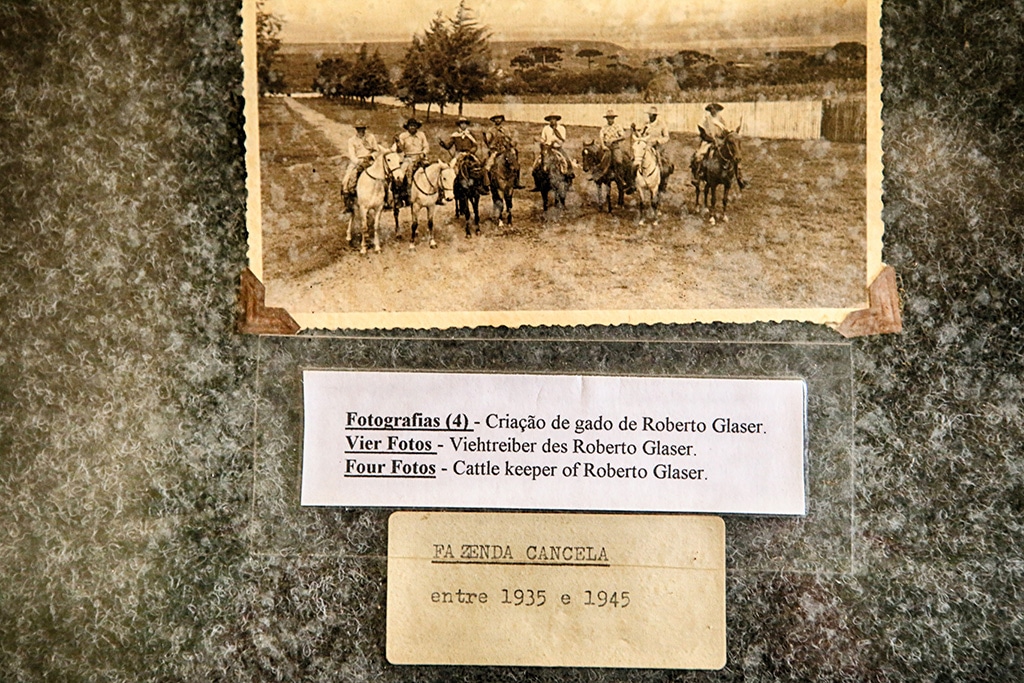 Fotografias (4) - Criação de gado de Roberto Glaser.
Vier Fotos - Viehtreiber des Roberto Glaser.
Four Fotos - Cattle keeper of Roberto Glaser.
FAZENDA CANCELA
entre 1935 e 1945